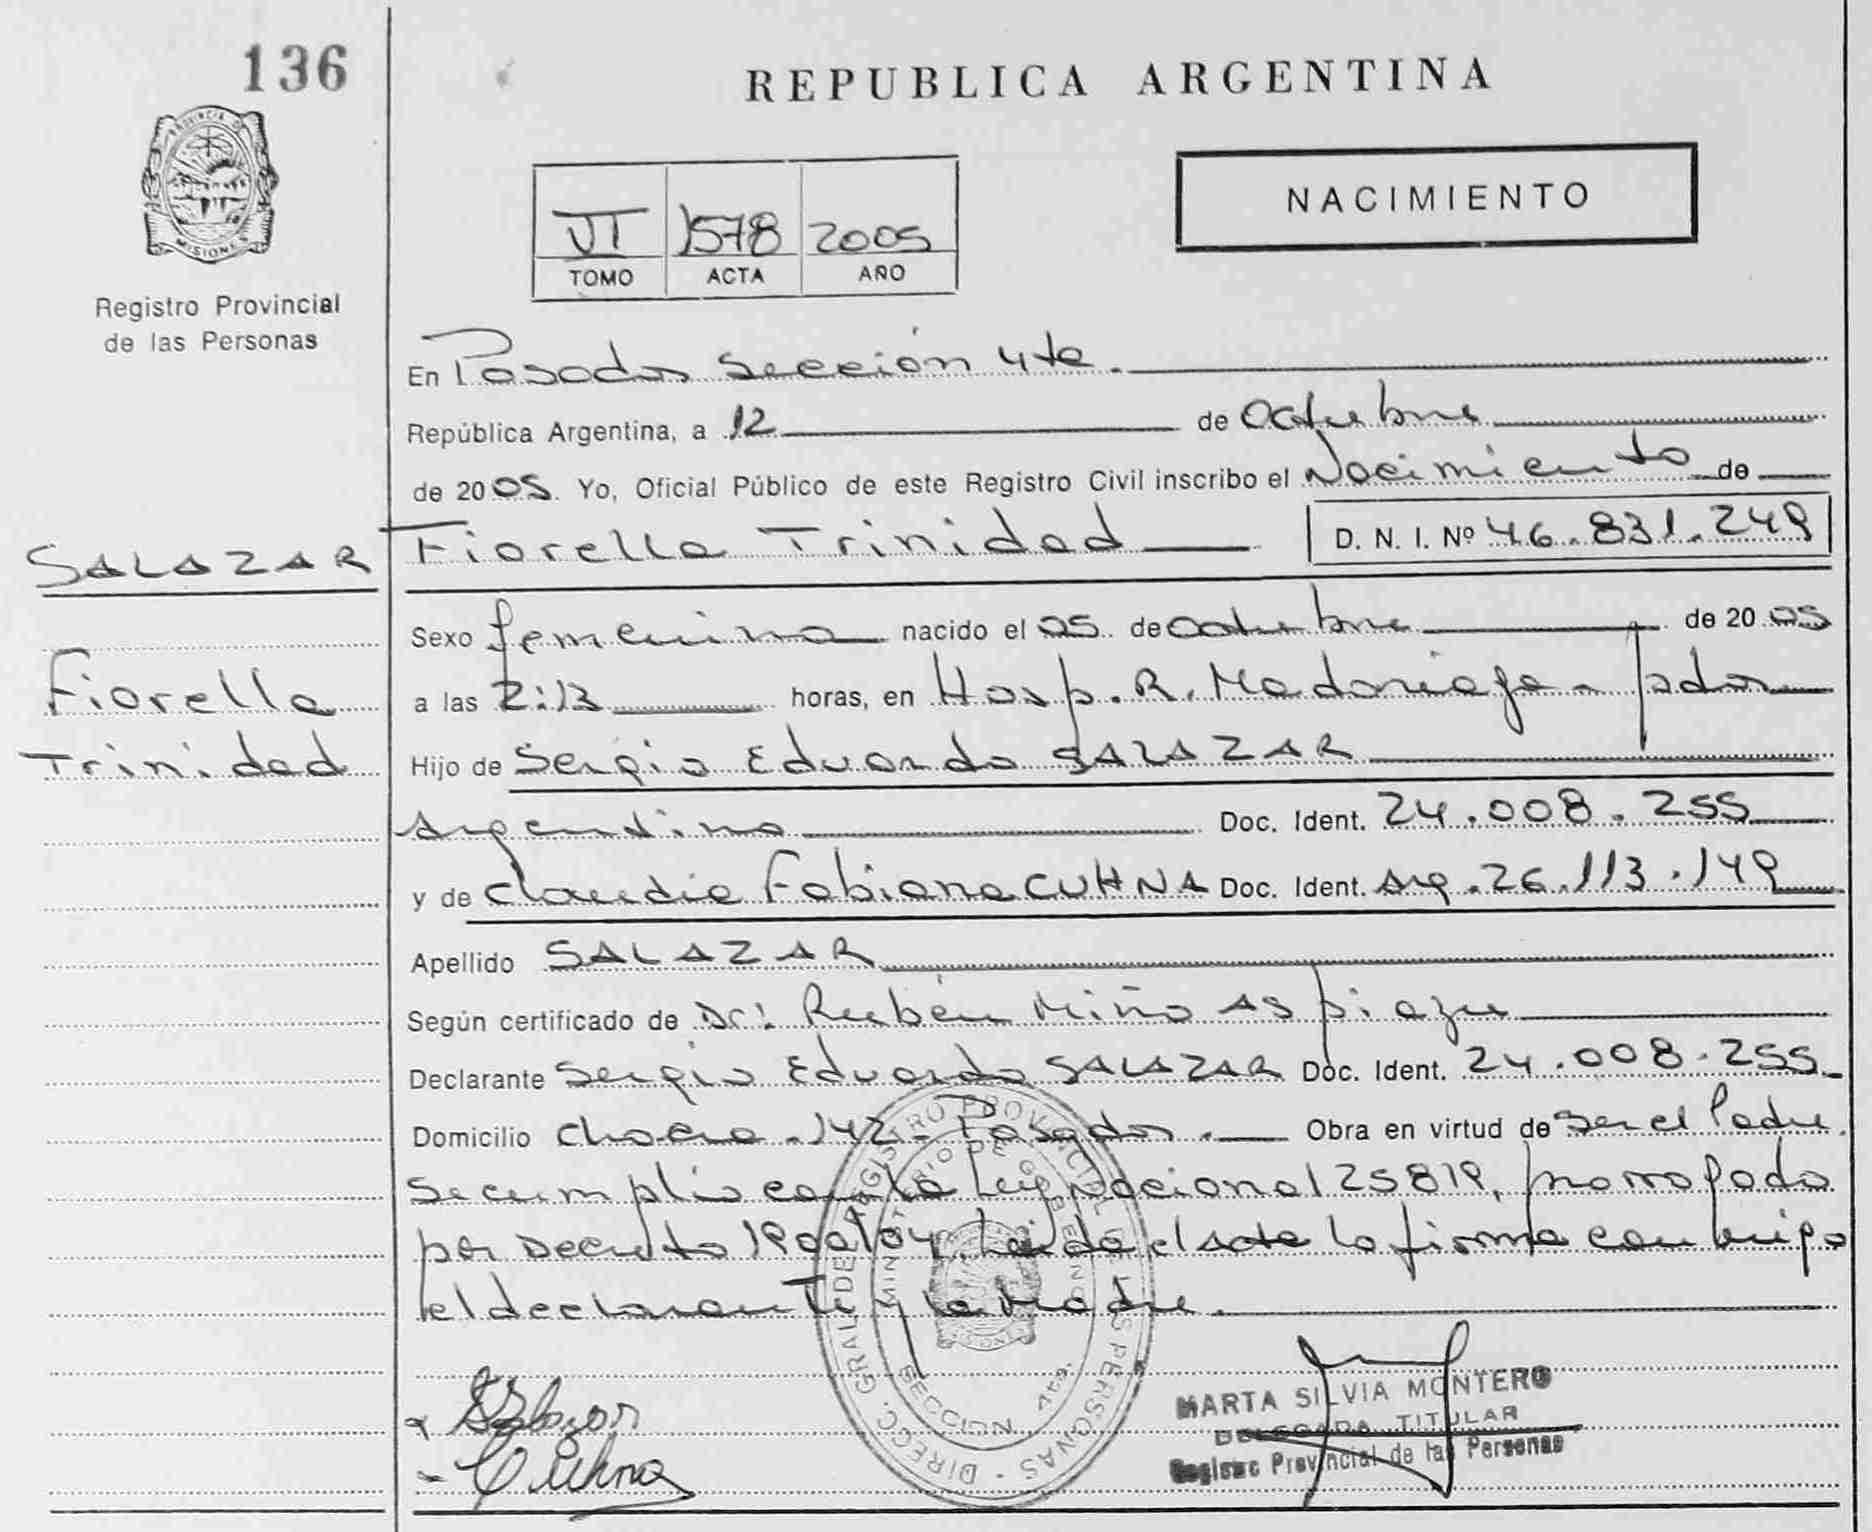 136
REPUBLICA ARGENTINA
PROVINCIA DE
MISIONES
Registro Provincial
de las Personas
VI 1578 2005
TOMO ACTA AÑO
NACIMIENTO
En Posadas sección 4ta.
República Argentina, a 12 de Octubre
de 2005. Yo, Oficial Público de este Registro Civil inscribo el Nacimiento de
SALAZAR Fiorella Trinidad D. N. I. Nº 46.831.249
Sexo femenino nacido el 05 de Octubre de 2005
Fiorella
a las 2:13 horas, en Hosp. R. Madariaga - pdas
Trinidad
Hijo de Sergio Eduardo SALAZAR
Argentino Doc. Ident. 24.008.255
y de Claudia Fabiana CUHNA Doc. Ident. Arg. 26.113.149
Apellido SALAZAR
Según certificado de Dr: Rubén Miño Aspiazu
Declarante Sergio Eduardo SALAZAR Doc. Ident. 24.008.255
Domicilio chacra. 142 - Posadas. Obra en virtud de ser el Padre.
Se cumplio con la Ley Nacional 25819, prorrogada
por Decreto 1900/04. Leida el acta la firma conmigo
el declarante y la Madre.
SSalazar
CCuhna
DIRECC. GRAL. DE REGISTRO PROVINCIAL DE LAS PERSONAS
MINISTERIO DE GOBIERNO
SECCION 4ta.
MISIONES
MARTA SILVIA MONTERO
DELEGADA TITULAR
Registro Provincial de las Personas